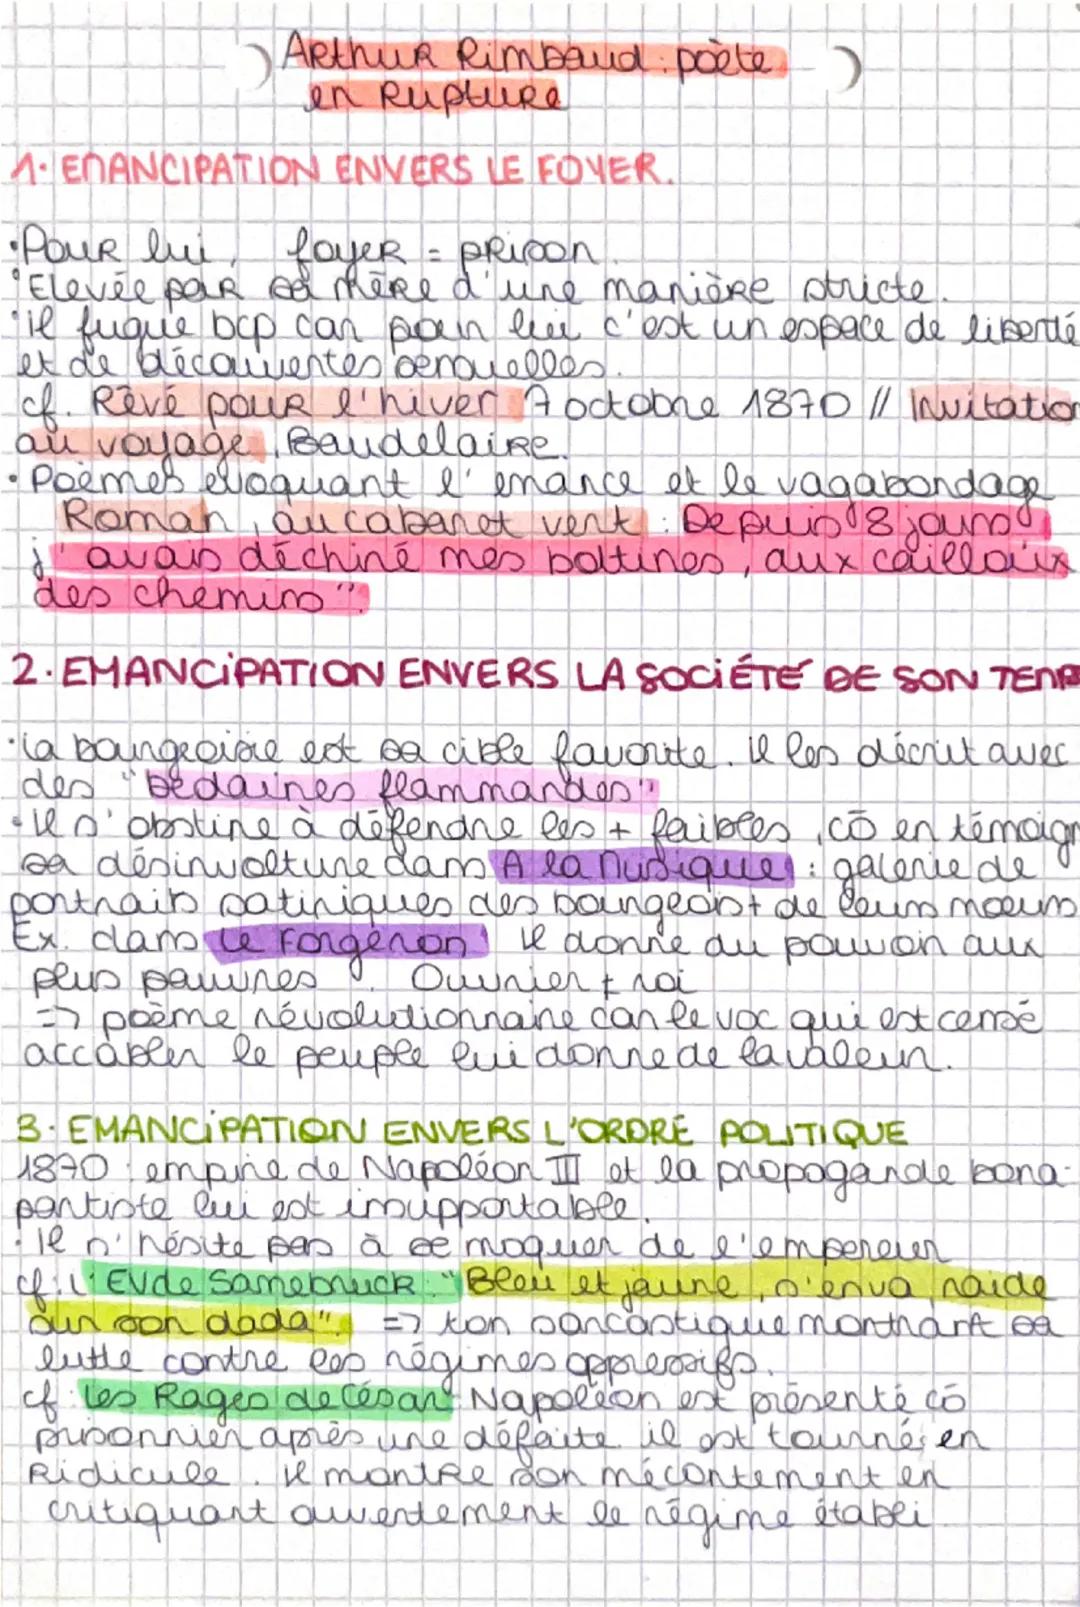 Arthur Rimbaud : poète
en Rupture
1. EMANCIPATION ENVERS LE FOYER.
• Pour lui, foyer = prison.
• Elevée par sa mère d'une manière stricte.
• il fugue bcp car pour lui c'est un espace de liberté
et de découvertes sensuelles.
cf. Rêvé pour l'hiver 7 octobre 1870 // Invitation
au voyage, Baudelaire.
• Poèmes évoquant l'errance et le vagabondage
Roman, au cabaret vert : "Depuis 8 jours
j'avais déchiré mes bottines, aux cailloux
des chemins".
2. EMANCIPATION ENVERS LA SOCIÉTÉ DE SON TEMPS
• la bourgeoisie est sa cible favorite. il les décrit avec
des "bedaines flammandes"
• il s'obstine à défendre les + faibles, cō en témoign
sa désinvolture dans A la Musique : galerie de
portraits satiriques des bourgeois + de leurs moeurs
Ex. dans Le Forgeron il donne du pouvoir aux
plus pauvres. Ouvrier ≠ roi
=> poème révolutionnaire car le voc qui est censé
accabler le peuple lui donne de la valeur.
3. EMANCIPATION ENVERS L'ORDRE POLITIQUE
1870 : empire de Napoléon III et la propagande bona-
partiste lui est insupportable.
• Il n'hésite pas à se moquer de l'empereur
cf : L'EVde Samebruck : "Bleu et jaune, s'en va, raide
sur son dada". => ton sarcastique montrant sa
lutte contre les régimes oppressifs.
cf. Les Rages de César : Napoléon est présenté cō
prisonnier après une défaite il est tourné en
Ridicule. il montre son mécontement en
critiquant ouvertement le régime établi